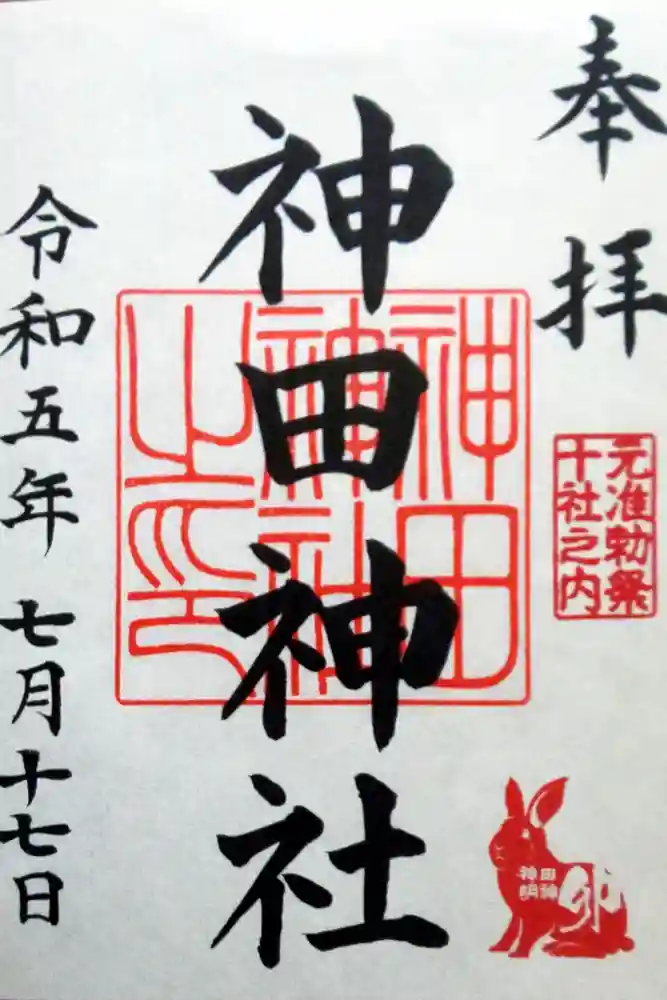 奉拝
元准勅祭
十社之内
神田神社
神田
神社
之印
令和五年 七月十七日
神田
明神
卯